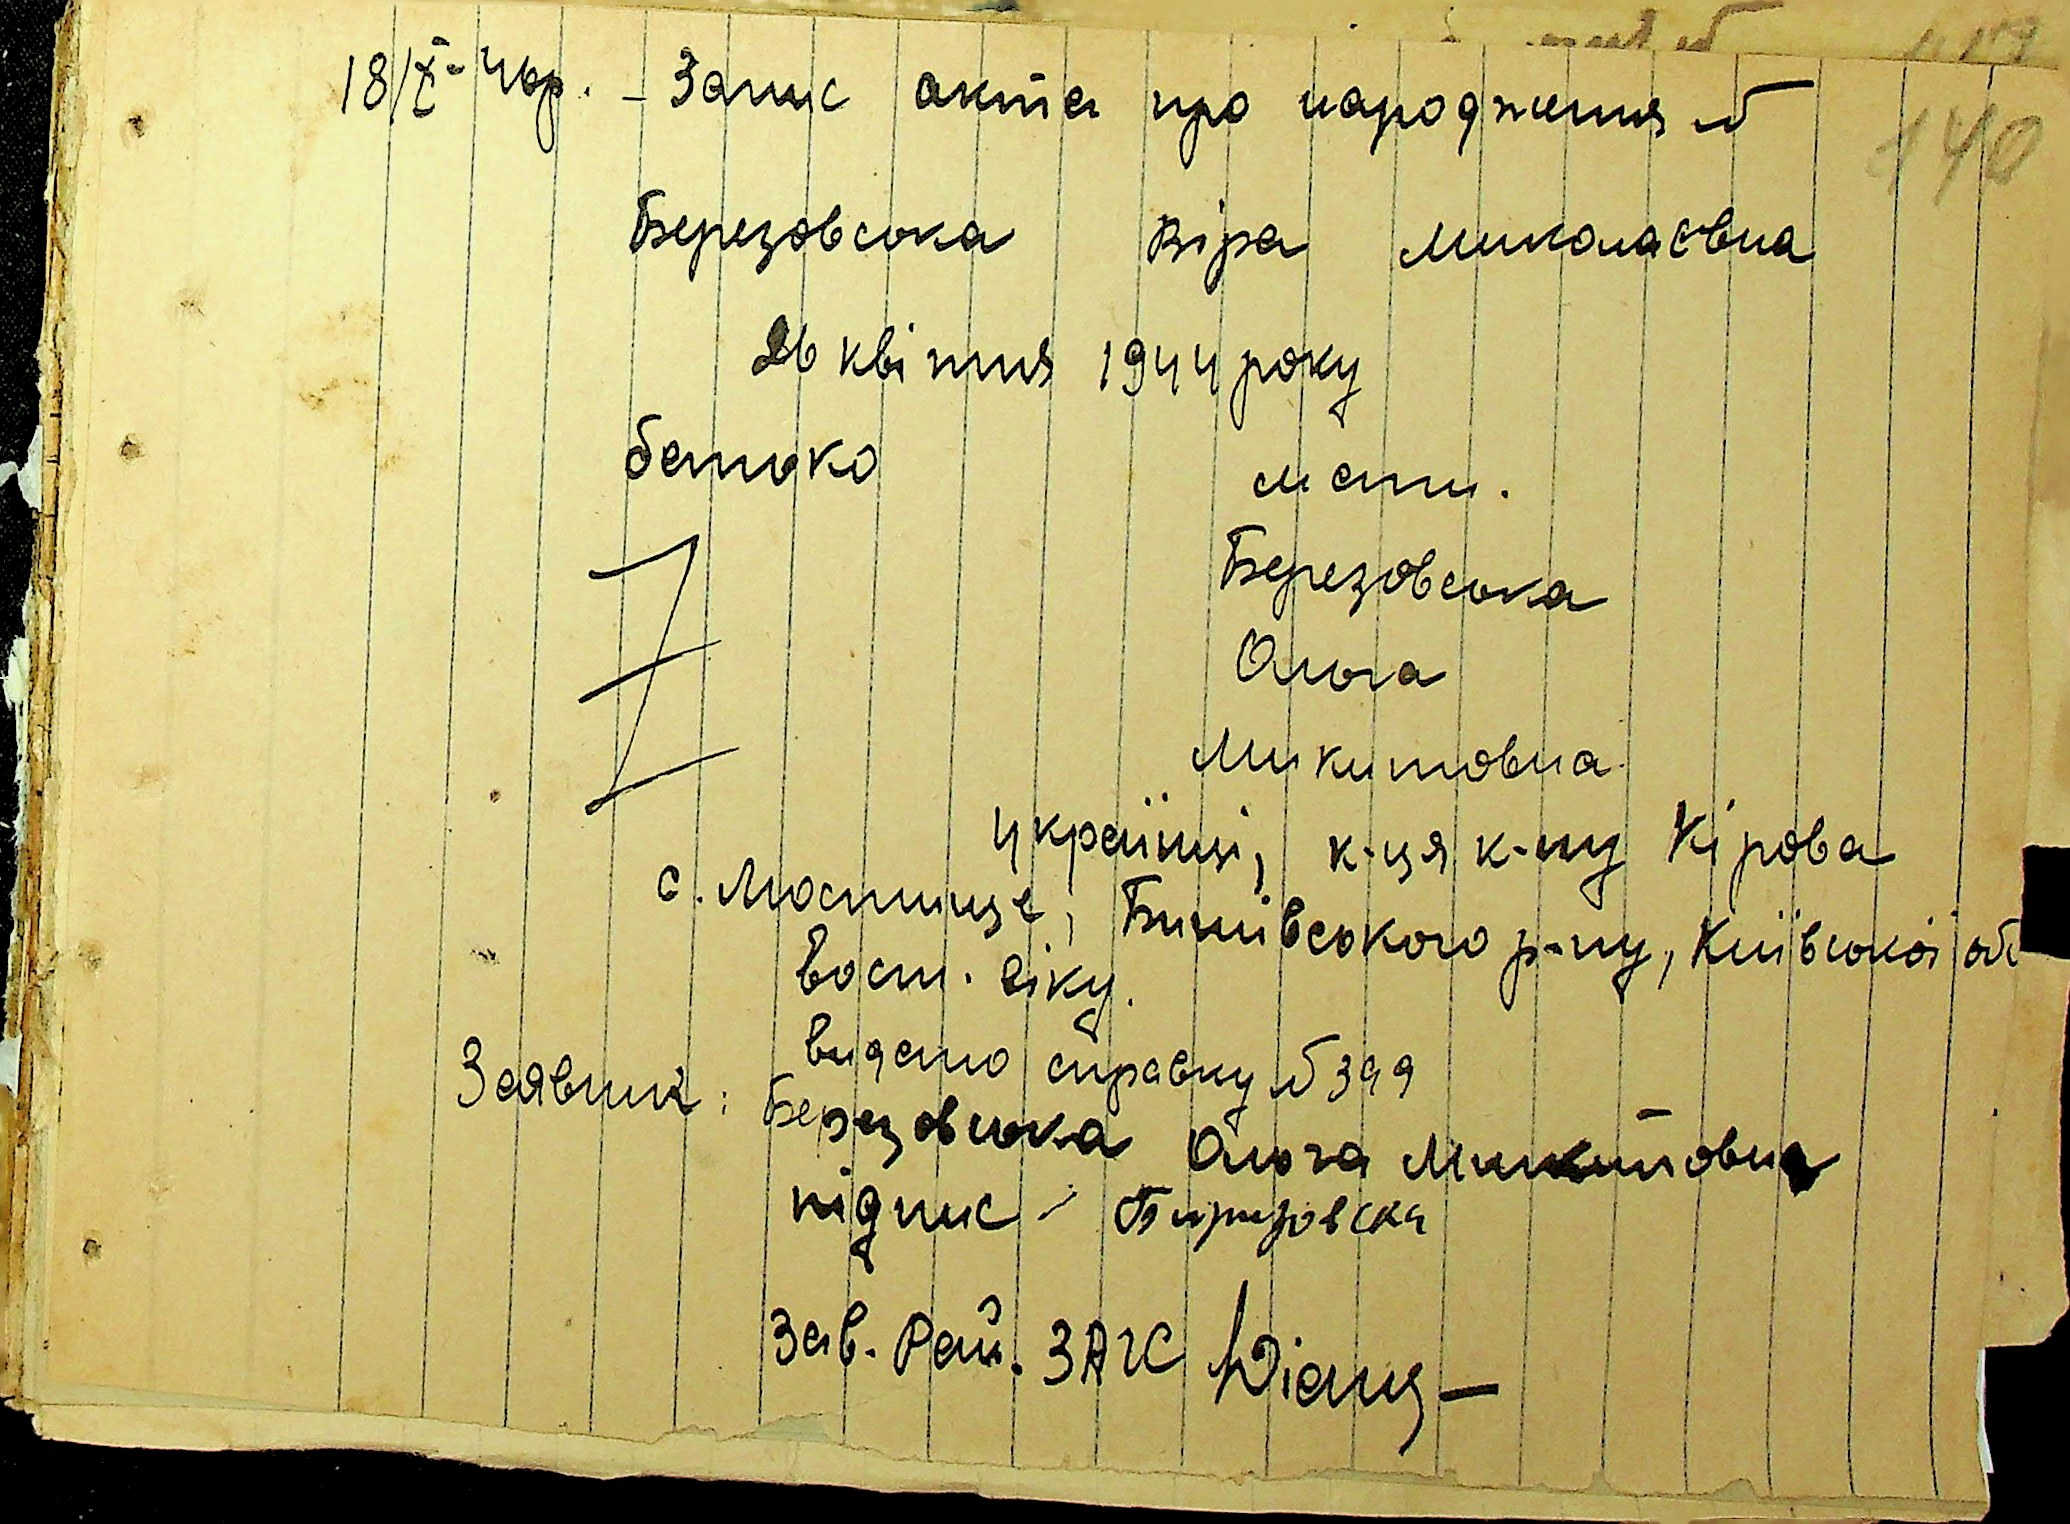 140
18/X-44р. - Запис акта про народження №
Березовська Віра Миколаєвна
26 квітня 1944 року
батько мати.
Березовська
Ольга
Микитовна
Українці, к-ця к-пу Кірова
с. Мостище, Бишівського р-ну, Київської об
вост. віку.
видано справку № 399
Заявник: Березовська Ольга Микитовна
підпис - Биризовска
Зав. Рай. ЗАГС